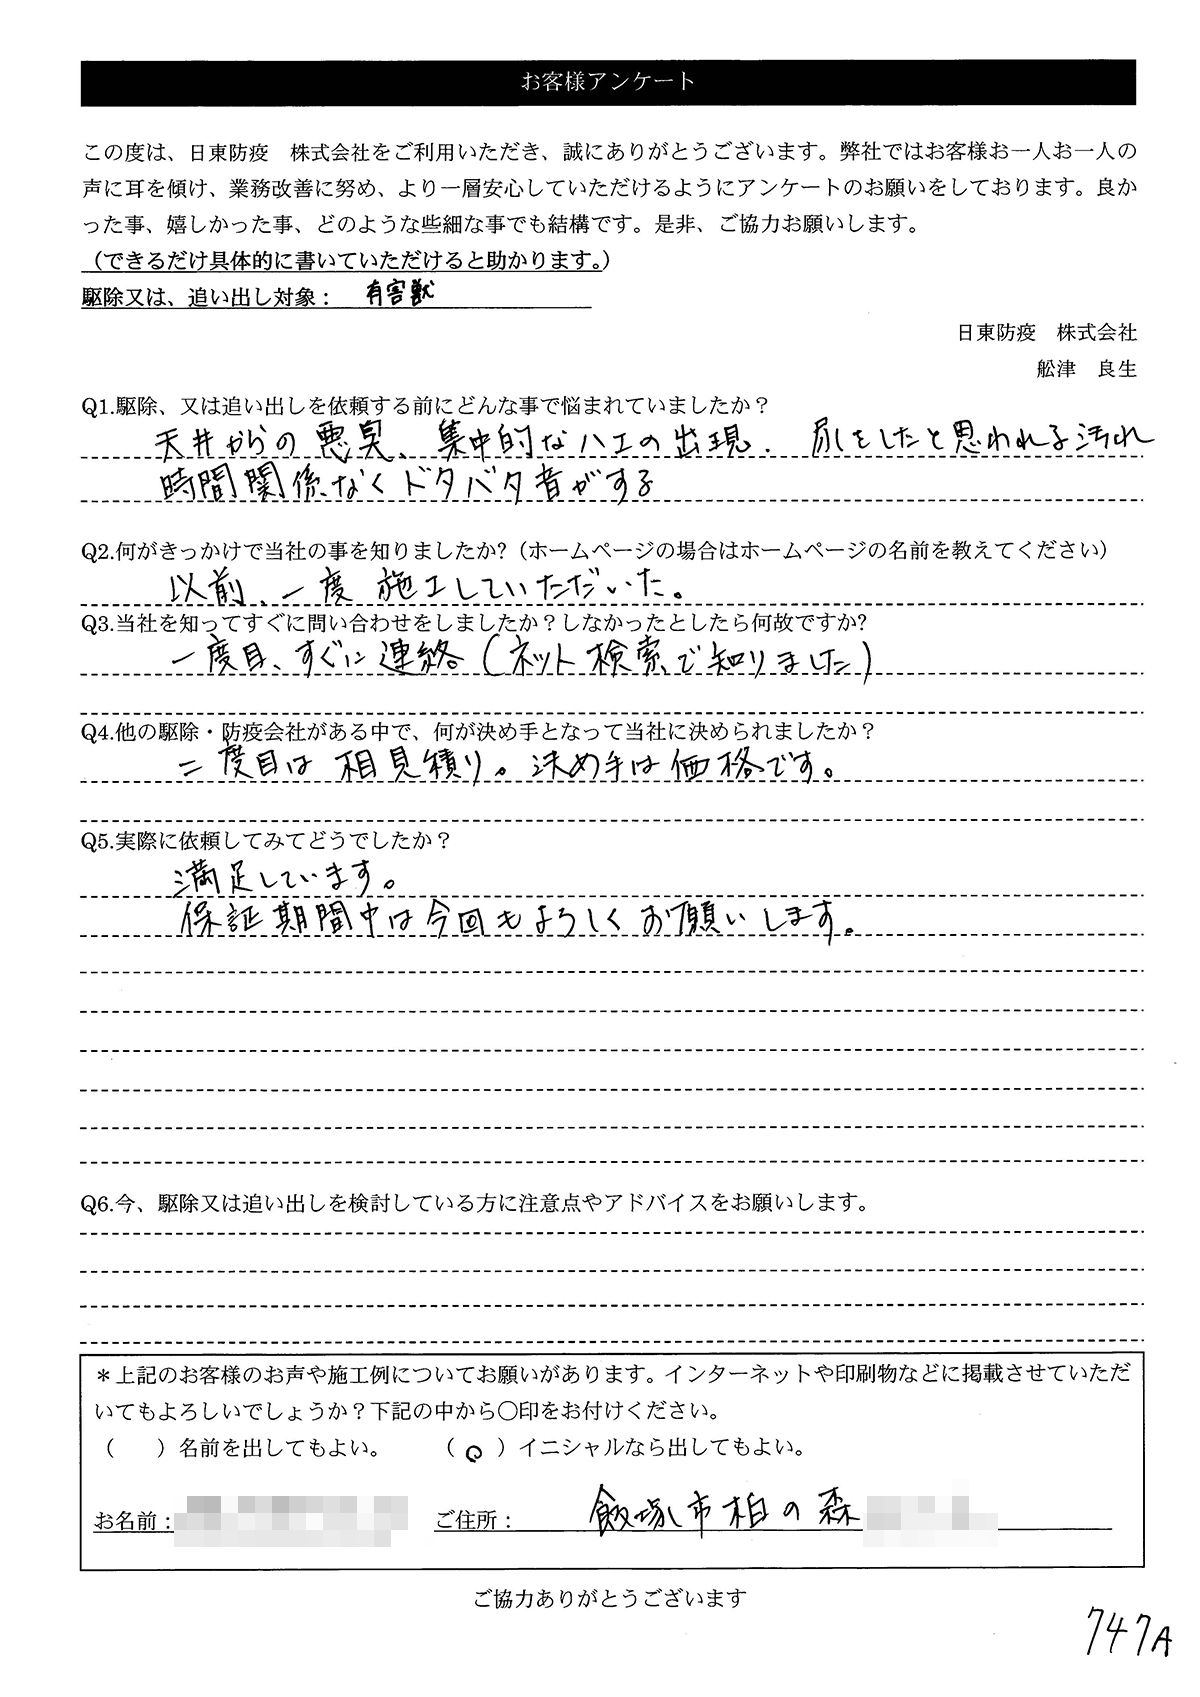 お客様アンケート
この度は、日東防疫　株式会社をご利用いただき、誠にありがとうございます。弊社ではお客様お一人お一人の
声に耳を傾け、業務改善に努め、より一層安心していただけるようにアンケートのお願いをしております。良か
った事、嬉しかった事、どのような些細な事でも結構です。是非、ご協力お願いします。
（できるだけ具体的に書いていただけると助かります。）
駆除又は、追い出し対象：　有害獣
日東防疫　株式会社
舩津　良生
Q1.駆除、又は追い出しを依頼する前にどんな事で悩まれていましたか？
天井からの悪臭、集中的なハエの出現．尿をしたと思われる汚れ
時間関係なくドタバタ音がする
Q2.何がきっかけで当社の事を知りましたか?（ホームページの場合はホームページの名前を教えてください）
以前、一度 施工していただいた。
Q3.当社を知ってすぐに問い合わせをしましたか？しなかったとしたら何故ですか?
一度目、すぐに連絡（ネット検索で知りました）
Q4.他の駆除・防疫会社がある中で、何が決め手となって当社に決められましたか？
二度目は相見積り。決め手は価格です。
Q5.実際に依頼してみてどうでしたか？
満足しています。
保証期間中は今回もよろしくお願いします。
Q6.今、駆除又は追い出しを検討している方に注意点やアドバイスをお願いします。
＊上記のお客様のお声や施工例についてお願いがあります。インターネットや印刷物などに掲載させていただ
いてもよろしいでしょうか？下記の中から〇印をお付けください。
（　　）名前を出してもよい。　　（ ○ ）イニシャルなら出してもよい。
お名前：　ご住所：　飯塚市柏の森
ご協力ありがとうございます
747A